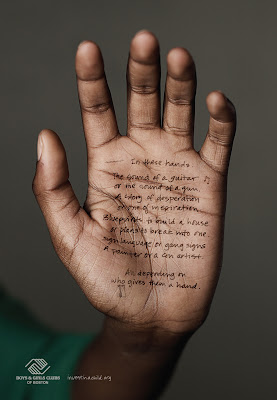 In these hands
The sound of a guitar
or the sound of a gun.
A story of desperation
or one of inspiration.
Blueprints to build a house
or plans to break into one.
Sign language or gang signs
A painter or a con artist.
All depending on
who gives them a hand.
BOYS & GIRLS CLUBS
OF BOSTON
investinachild.org